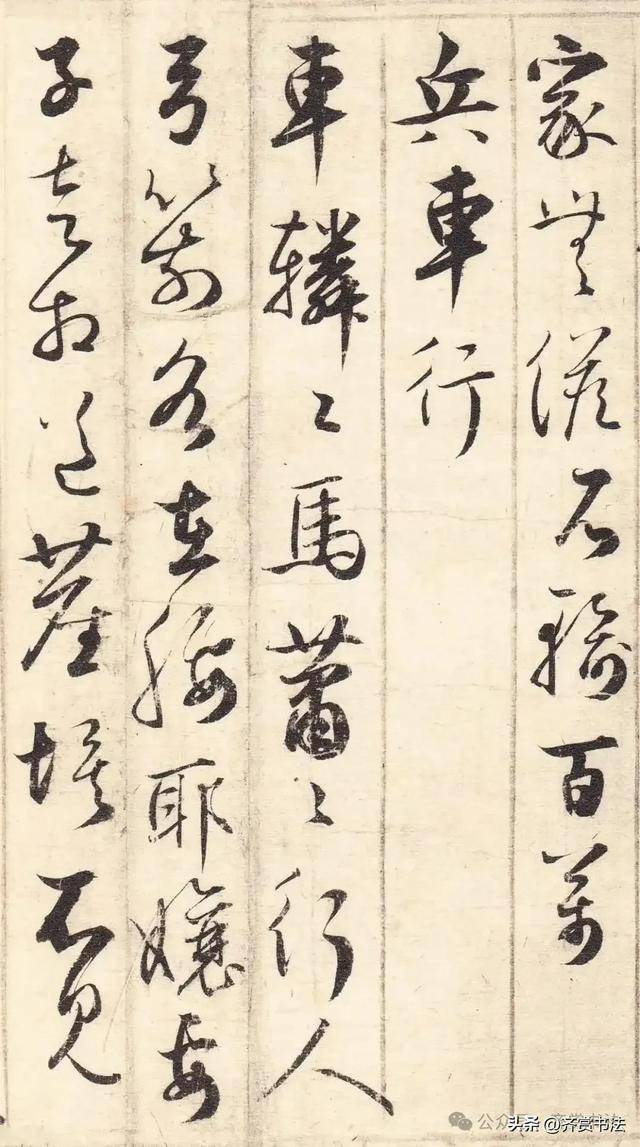 家無儋石輸百萬
兵車行
車轔〻馬蕭〻行人
弓箭各在腰耶孃妻
子走相送塵埃不見
头条 @齐赏书法